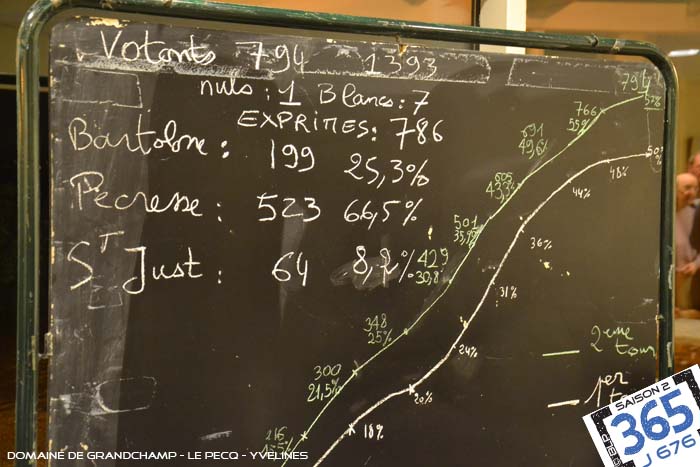 Votants 794 1393
nuls : 1 Blancs : 7
EXPRIMES : 786
Bartolone : 199 25,3%
Pecresse : 523 66,5%
S^T Just : 64 8,2%
794
766
55%
691
49,6%
605
501
429
30,8
348
25%
300
21,5%
216
50%
48%
44%
36%
31%
24%
20%
18%
2eme tour
1er
SAISON 2
365
J 676
DOMAINE DE GRANDCHAMP - LE PECQ - YVELINES